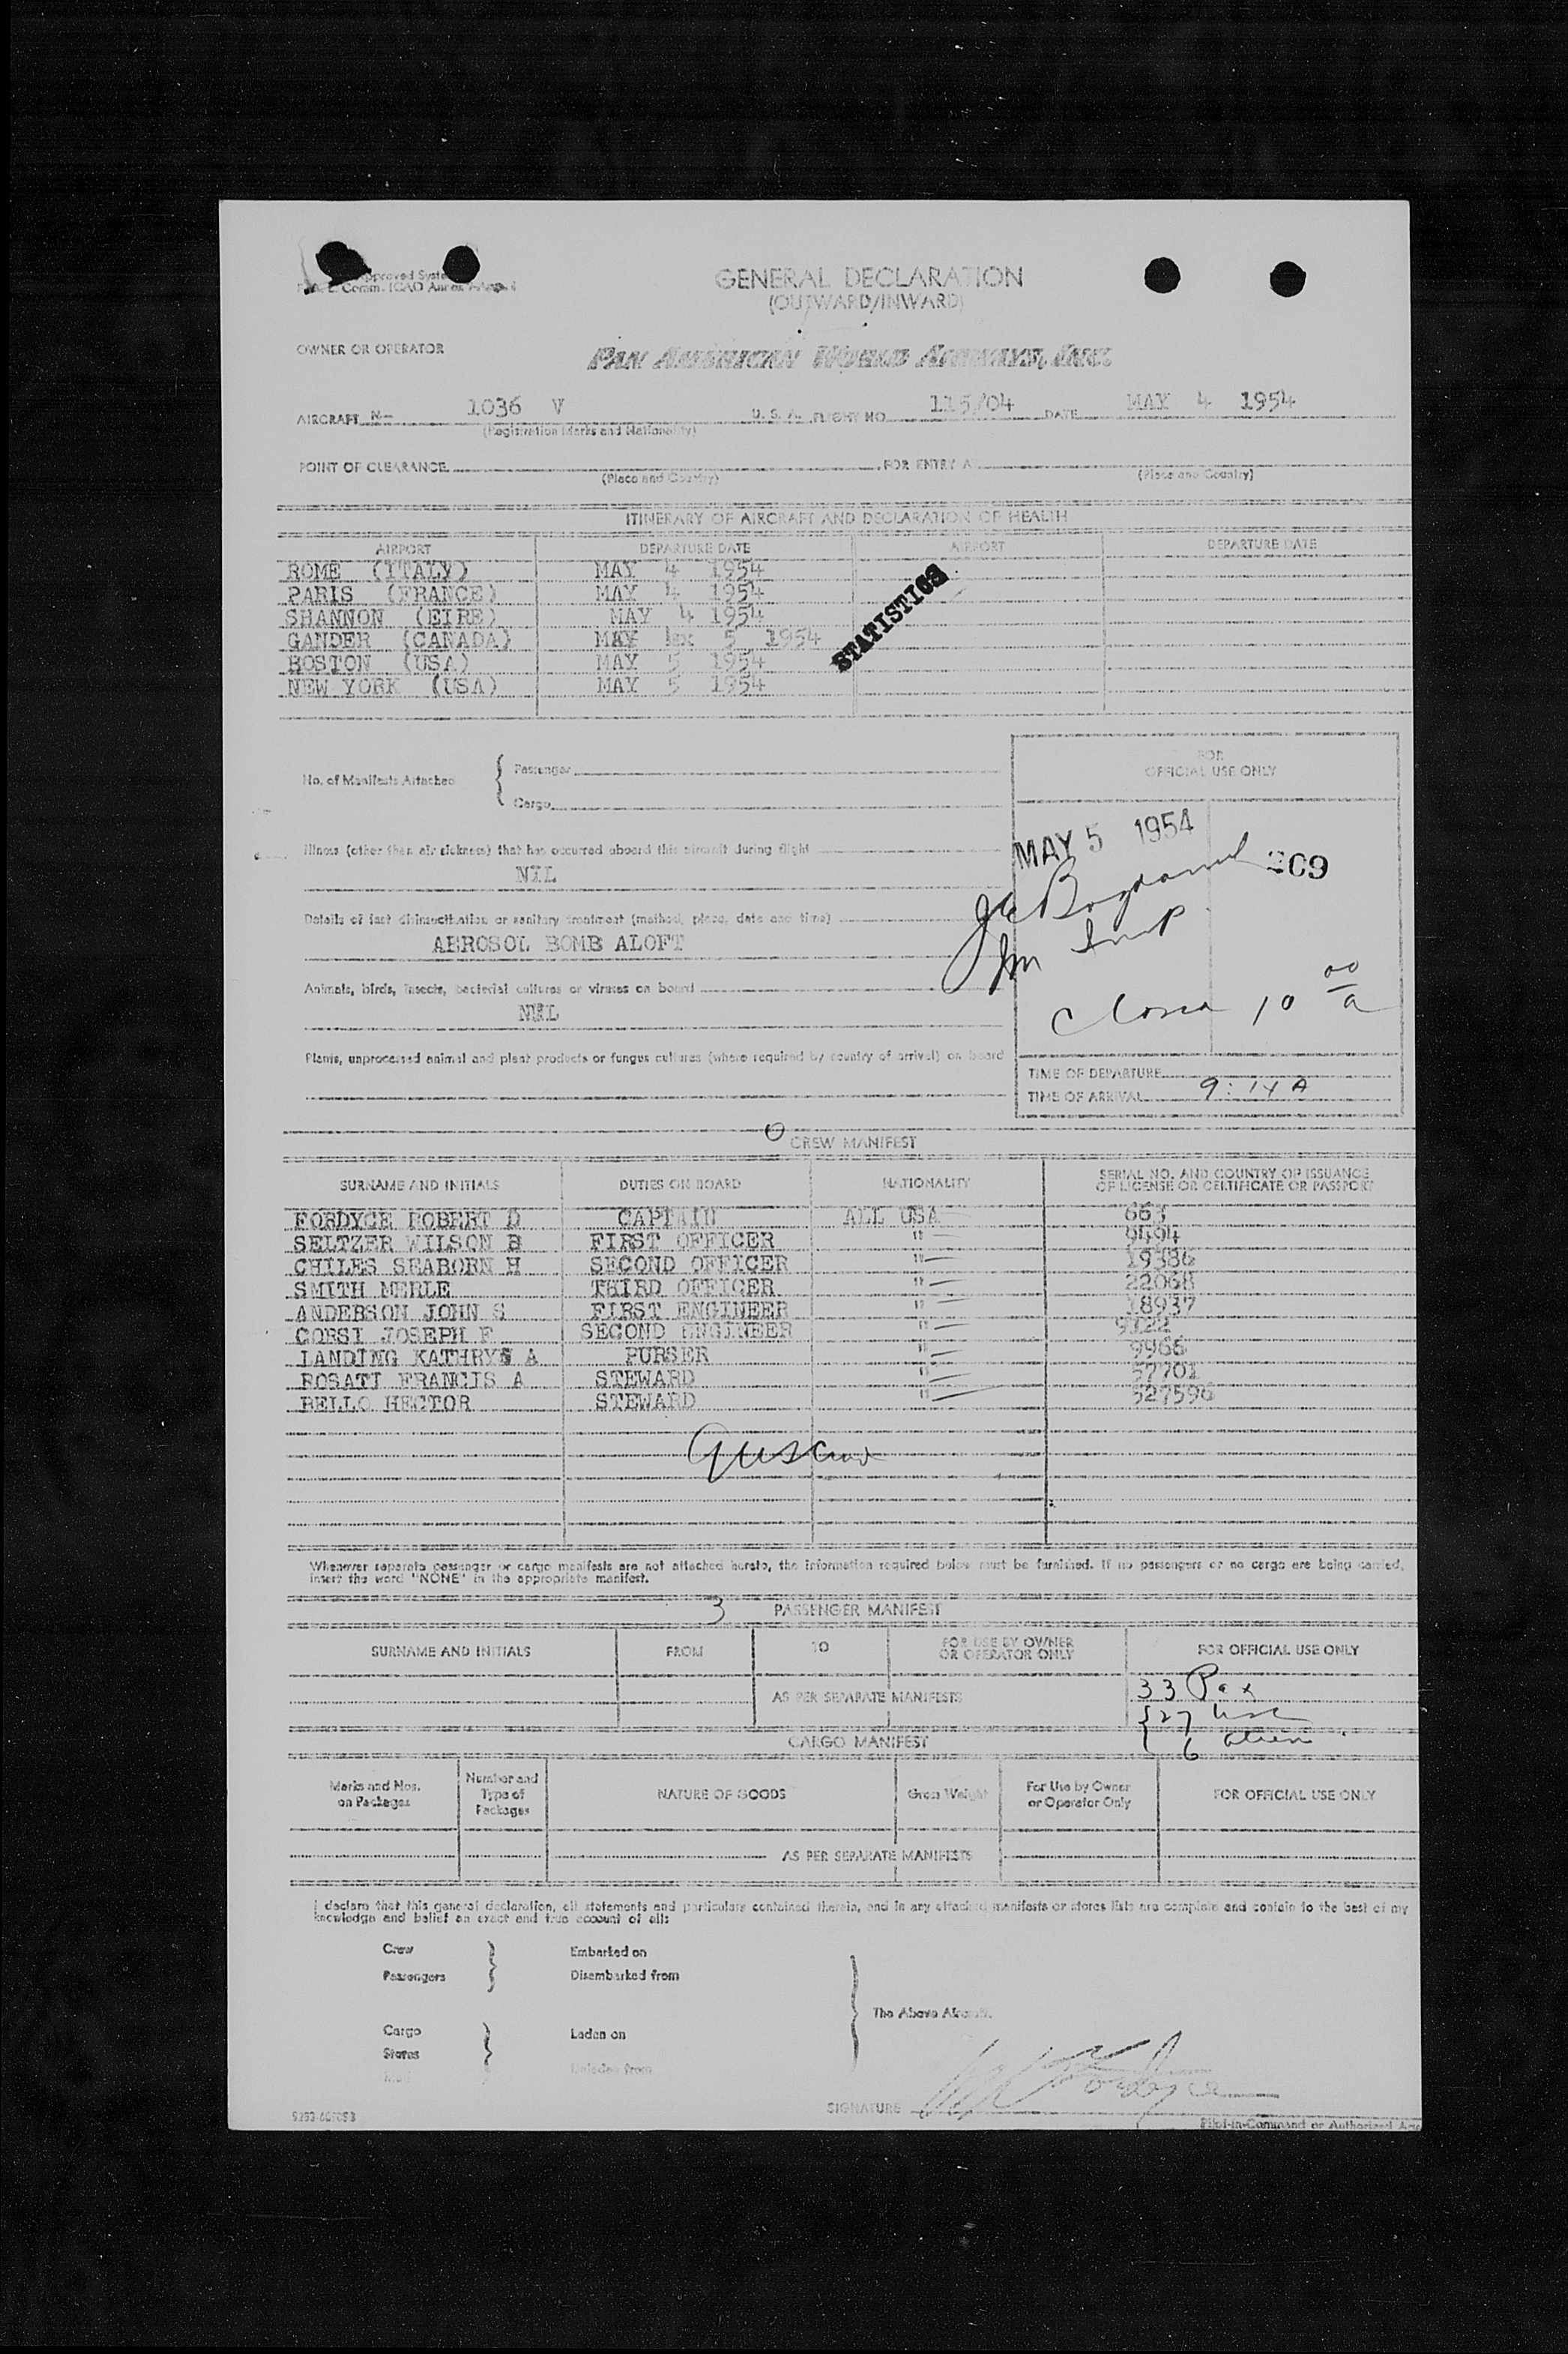 GENERAL DECLARATION
(OUTWARD/INWARD)
OWNER OR OPERATOR PAN AMERICAN WORLD AIRWAYS, INC.
AIRCRAFT N- 1036 V U. S. A. FLIGHT NO. 115/04 DATE MAY 4 1954
(Registration Marks and Nationality)
POINT OF CLEARANCE FOR ENTRY AT
(Place and Country) (Place and Country)
ITINERARY OF AIRCRAFT AND DECLARATION OF HEALTH
AIRPORT DEPARTURE DATE AIRPORT DEPARTURE DATE
ROME (ITALY) MAY 4 1954
PARIS (FRANCE) MAY 4 1954
SHANNON (EIRE) MAY 4 1954
GANDER (CANADA) MAY 5 1954
BOSTON (USA) MAY 5 1954
NEW YORK (USA) MAY 5 1954
STATISTICS
No. of Manifests Attached
Passenger
Cargo
FOR
OFFICIAL USE ONLY
MAY 5 1954
209
Illness (other than air sickness) that has occurred aboard this aircraft during flight
NIL
Details of last disinsectization or sanitary treatment (method, place, date and time)
AEROSOL BOMB ALOFT
Animals, birds, insects, bacterial cultures or viruses on board
NIL
Plants, unprocessed animal and plant products or fungus cultures (where required by country of arrival) on board
Imm Insp
10 00 a
TIME OF DEPARTURE
TIME OF ARRIVAL 9:14 A
CREW MANIFEST
SURNAME AND INITIALS DUTIES ON BOARD NATIONALITY SERIAL NO. AND COUNTRY OF ISSUANCE
OF LICENSE OR CERTIFICATE OR PASSPORT
FORDYCE ROBERT D CAPTAIN ALL USA 663
SELTZER WILSON B FIRST OFFICER " 9494
CHILES SEABORN H SECOND OFFICER " 19386
SMITH MERLE THIRD OFFICER " 22068
ANDERSON JOHN S FIRST ENGINEER " 18937
CORSI JOSEPH F SECOND ENGINEER " 9122
LANDING KATHRYN A PURSER " 9966
ROSATI FRANCIS A STEWARD " 57701
BELLO HECTOR STEWARD " 527596
Whenever separate passenger or cargo manifests are not attached hereto, the information required below must be furnished. If no passengers or no cargo are being carried,
insert the word "NONE" in the appropriate manifest.
3 PASSENGER MANIFEST
SURNAME AND INITIALS FROM TO FOR USE BY OWNER
OR OPERATOR ONLY FOR OFFICIAL USE ONLY
AS PER SEPARATE MANIFESTS
33 Pax
27 usc
6 alien
CARGO MANIFEST
Marks and Nos.
on Packages Number and
Type of
Packages NATURE OF GOODS Gross Weight For Use by Owner
or Operator Only FOR OFFICIAL USE ONLY
AS PER SEPARATE MANIFESTS
I declare that this general declaration, all statements and particulars contained therein, and in any attached manifests or stores lists are complete and contain to the best of my
knowledge and belief an exact and true account of all:
Crew Embarked on
Passengers Disembarked from
The Above Aircraft.
Cargo Laden on
Stores
Mail Unladen from
SIGNATURE
Pilot-in-Command or Authorized